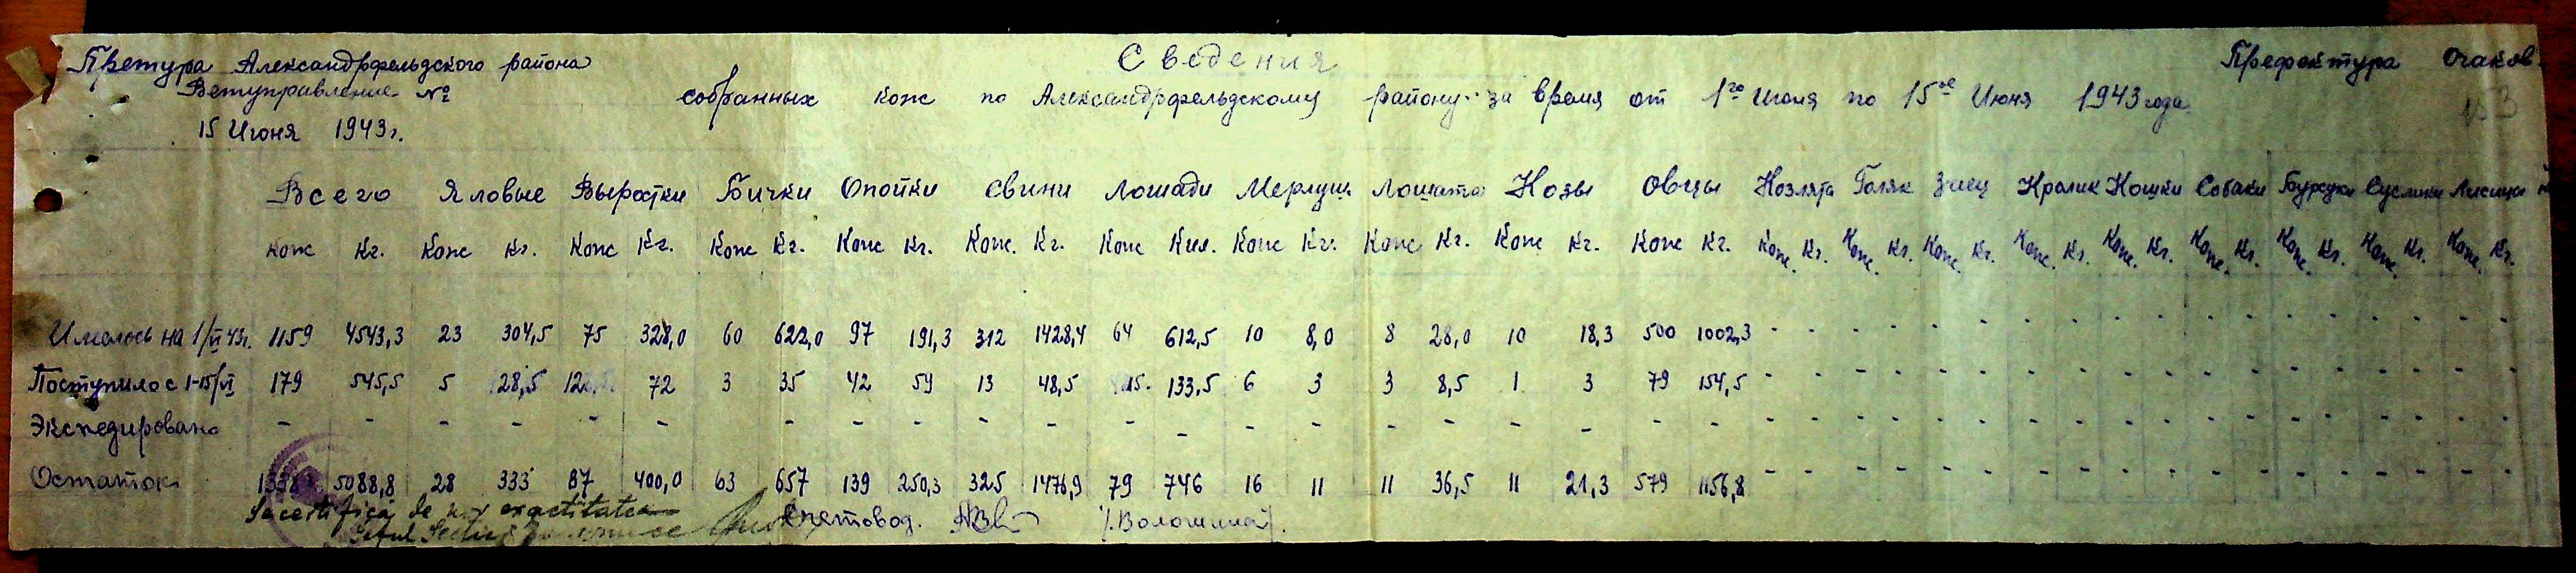 Претура Александрфельдского района
Ветуправление №
15 Июня 1943 г.
Сведения
Префектура Очаков.
собранных кож по Александрфельдскому району за время от 1го Июня по 15ое Июня 1943 года
153
Всего Яловые Выростки Бички Опойки Свини Лошади Мерлуш. Лошата Козы Овцы Козлята Голяк Заец Кролик Кошки Собаки Бурсуки Суслики Лисицы
Кож Кг. Кож Кг. Кож Кг. Кож Кг. Кож Кг. Кож. Кг. Кож Кил. Кож Кг. Кож Кг. Кож Кг. Кож Кг. Кож. Кг. Кож. Кг. Кож. Кг. Кож. Кг. Кож. Кг. Кож. Кг. Кож. Кг. Кож. Кг. Кож. Кг.
Имелось на 1/VI 43г. 1159 4543,3 23 304,5 75 328,0 60 622,0 97 191,3 312 1428,4 64 612,5 10 8,0 8 28,0 10 18,3 500 1002,3 - - - - - - - - - - - - - - - - - -
Поступило с 1-15/VI 179 545,5 5 28,5 12 72 3 35 42 59 13 48,5 15. 133,5 6 3 3 8,5 1 3 79 154,5 - - - - - - - - - - - - - - - - - -
Экспедировано - - - - - - - - - - - - - - - - - - - - - - - - - - - - - - - - - - - - - - -
Остаток 1338 5088,8 28 333 87 400,0 63 657 139 250,3 325 1476,9 79 746 16 11 11 36,5 11 21,3 579 1156,8 - - - - - - - - - - - - - - - - - -
Se certifică de noi exactitatea
Șeful Счетовод. /Волошина/.